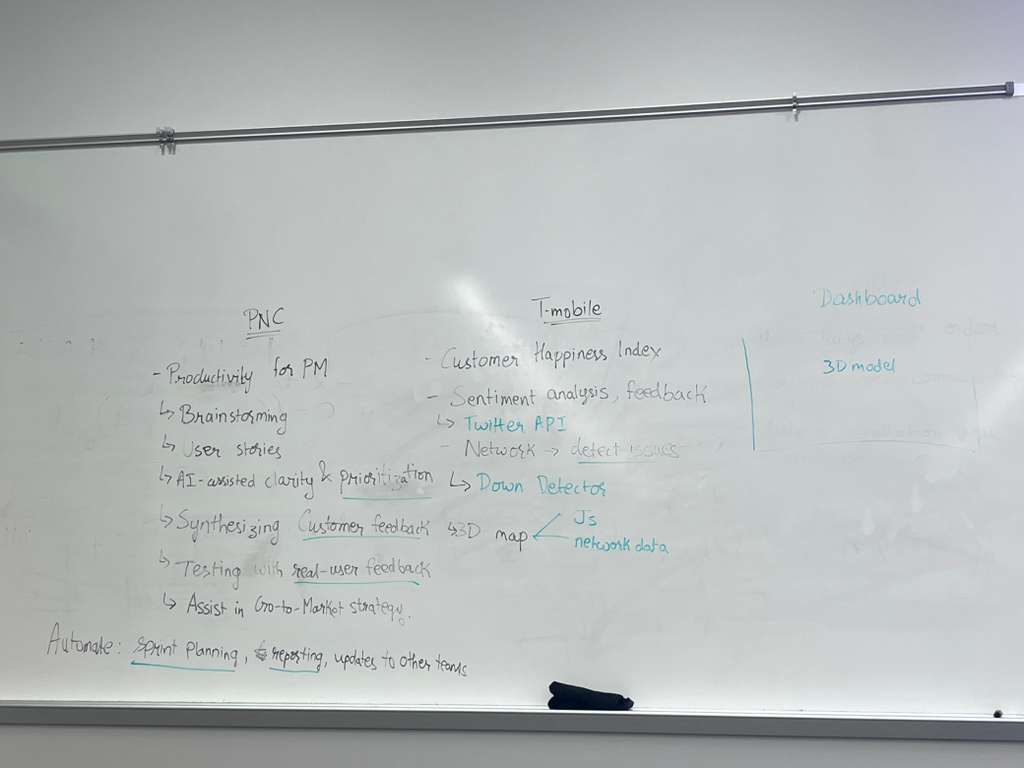 PNC
- Productivity for PM
↳ Brainstorming
↳ User stories
↳ AI-assisted clarity & prioritization
↳ Synthesizing Customer feedback
↳ Testing with real-user feedback
↳ Assist in Go-to-Market strategy.
Automate: Sprint planning, reporting, updates to other teams
T-mobile
- Customer Happiness Index
- Sentiment analysis, feedback
↳ Twitter API
- Network → detect issues
↳ Down Detector
↳ 3D map
Js
network data
Dashboard
3D model